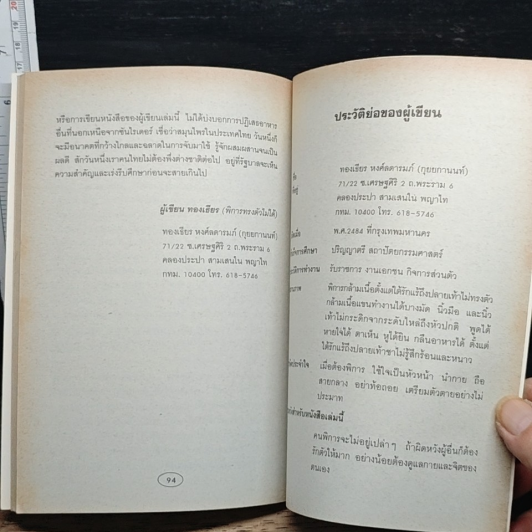 หรือการเขียนหนังสือของผู้เขียนเล่มนี้ ไม่ได้บ่งบอกการปฏิเสธอาหาร
อื่นที่นอกเหนือจากซันไรเดอร์ เชื่อว่าสมุนไพรในประเทศไทย วันหนึ่งก็
จะมีอนาคตที่กว้างไกลและฉลาดในการจับมาใช้ รู้จักผสมผสานจนเป็น
ผลดี สักวันหนึ่งเราคนไทยไม่ต้องพึ่งต่างชาติต่อไป อยู่ที่รัฐบาลจะเห็น
ความสำคัญและเร่งรีบศึกษาก่อนจะสายเกินไป
ผู้เขียน ทองเธียร (พิการทรงตัวไม่ได้)
ทองเธียร หงศ์ลดารมภ์ (กุยยกานนท์)
71/22 ซ.เศรษฐศิริ 2 ถ.พระราม 6
คลองประปา สามเสนใน พญาไท
กทม. 10400 โทร. 618-5746
94
ประวัติย่อของผู้เขียน
ทองเธียร หงศ์ลดารมภ์ (กุยยกานนท์)
71/22 ซ.เศรษฐศิริ 2 ถ.พระราม 6
คลองประปา สามเสนใน พญาไท
กทม. 10400 โทร. 618-5746
พ.ศ.2484 ที่กรุงเทพมหานคร
การศึกษา ปริญญาตรี สถาปัตยกรรมศาสตร์
การทำงาน รับราชการ งานเอกชน กิจการส่วนตัว
พิการกล้ามเนื้อตั้งแต่ใต้รักแร้ถึงปลายเท้าไม่ทรงตัว
กล้ามเนื้อแขนทำงานได้บางมัด นิ้วมือ และนิ้ว
เท้าไม่กระดิกจากระดับไหล่ถึงหัวปกติ พูดได้
หายใจได้ ตาเห็น หูได้ยิน กลืนอาหารได้ ตั้งแต่
ใต้รักแร้ถึงปลายเท้าชาไม่รู้สึกร้อนและหนาว
ประจำใจ เมื่อต้องพิการ ใช้ใจเป็นหัวหน้า นำกาย ถือ
สายกลาง อย่าท้อถอย เตรียมตัวตายอย่างไม่
ประมาท
สำหรับหนังสือเล่มนี้
คนพิการจะไม่อยู่เปล่าๆ ถ้ามีดหวังผู้อื่นก็ต้อง
รักตัวให้มาก อย่างน้อยต้องดูแลกายและจิตของ
ตนเอง